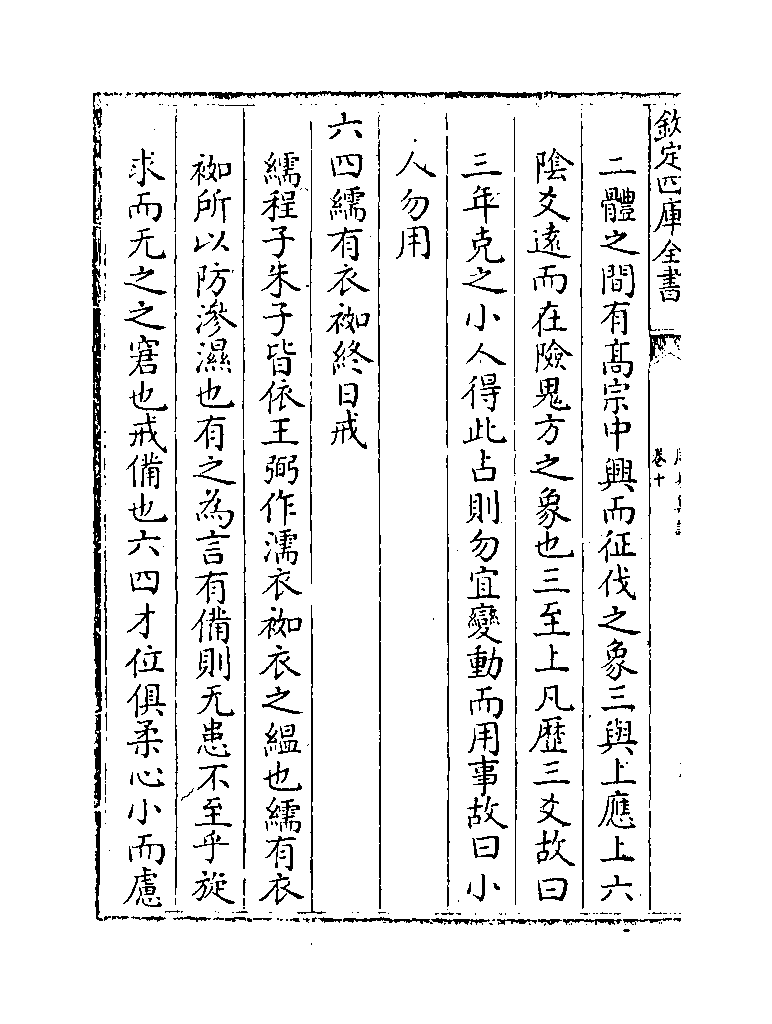 欽定四庫全書
卷十
二體之間有髙宗中興而征伐之象三與上應上六
陰爻遠而在險鬼方之象也三至上凡歴三爻故曰
三年克之小人得此占則勿宜變動而用事故曰小
人勿用
六四繻有衣袽終日戒
繻程子朱子皆依王弼作濡衣袽衣之緼也繻有衣
袽所以防滲濕也有之為言有備則无患不至乎旋
求而无之之窘也戒備也六四才位俱柔心小而慮